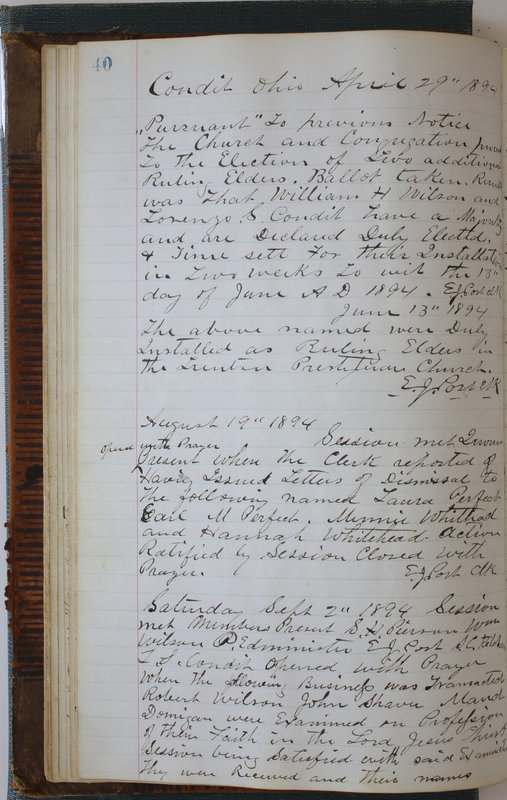 40
Condit Ohio April 29" 1894
"Pursuant" To previous Notice
The Church and Congregation
To the Election of Two additional
Ruling Elders. Ballot taken. Result
was That William H Wilson and
Lorenzo S Condit have a Majority
and are Declared Duly Elected.
& Time sett For their Installation
in Two weeks to wit the 13"
day of June A D 1894. E.J. Post clk
June 13" 1894
The above named were Duly
Installed as Ruling Elders in
the Trenton Church.
E.J. Post clk
August 19" 1894
Session met
opend with Prayer
Present when the Clerk reported of
Having Issued Letters of Dismissal to
The following named Laura Perfect
Earl M Perfect. Minnie Whitehead
and Hannah Whitehead Action
Ratified by Session Closed with
Prayer. E.J. Post Clk
Saturday Sept 2" 1894 Session
met Members Present S. H. Pierson Wm
Wilson P. Edminster E J Post
L S. Condit Opened with Prayer
When the Following Business was Transacted
Robert Wilson John Shaver Maud
Domigan were Examined on Profession
of their Faith in the Lord Jesus Christ
Session being Satisfied with said Examination
They were Received and their names